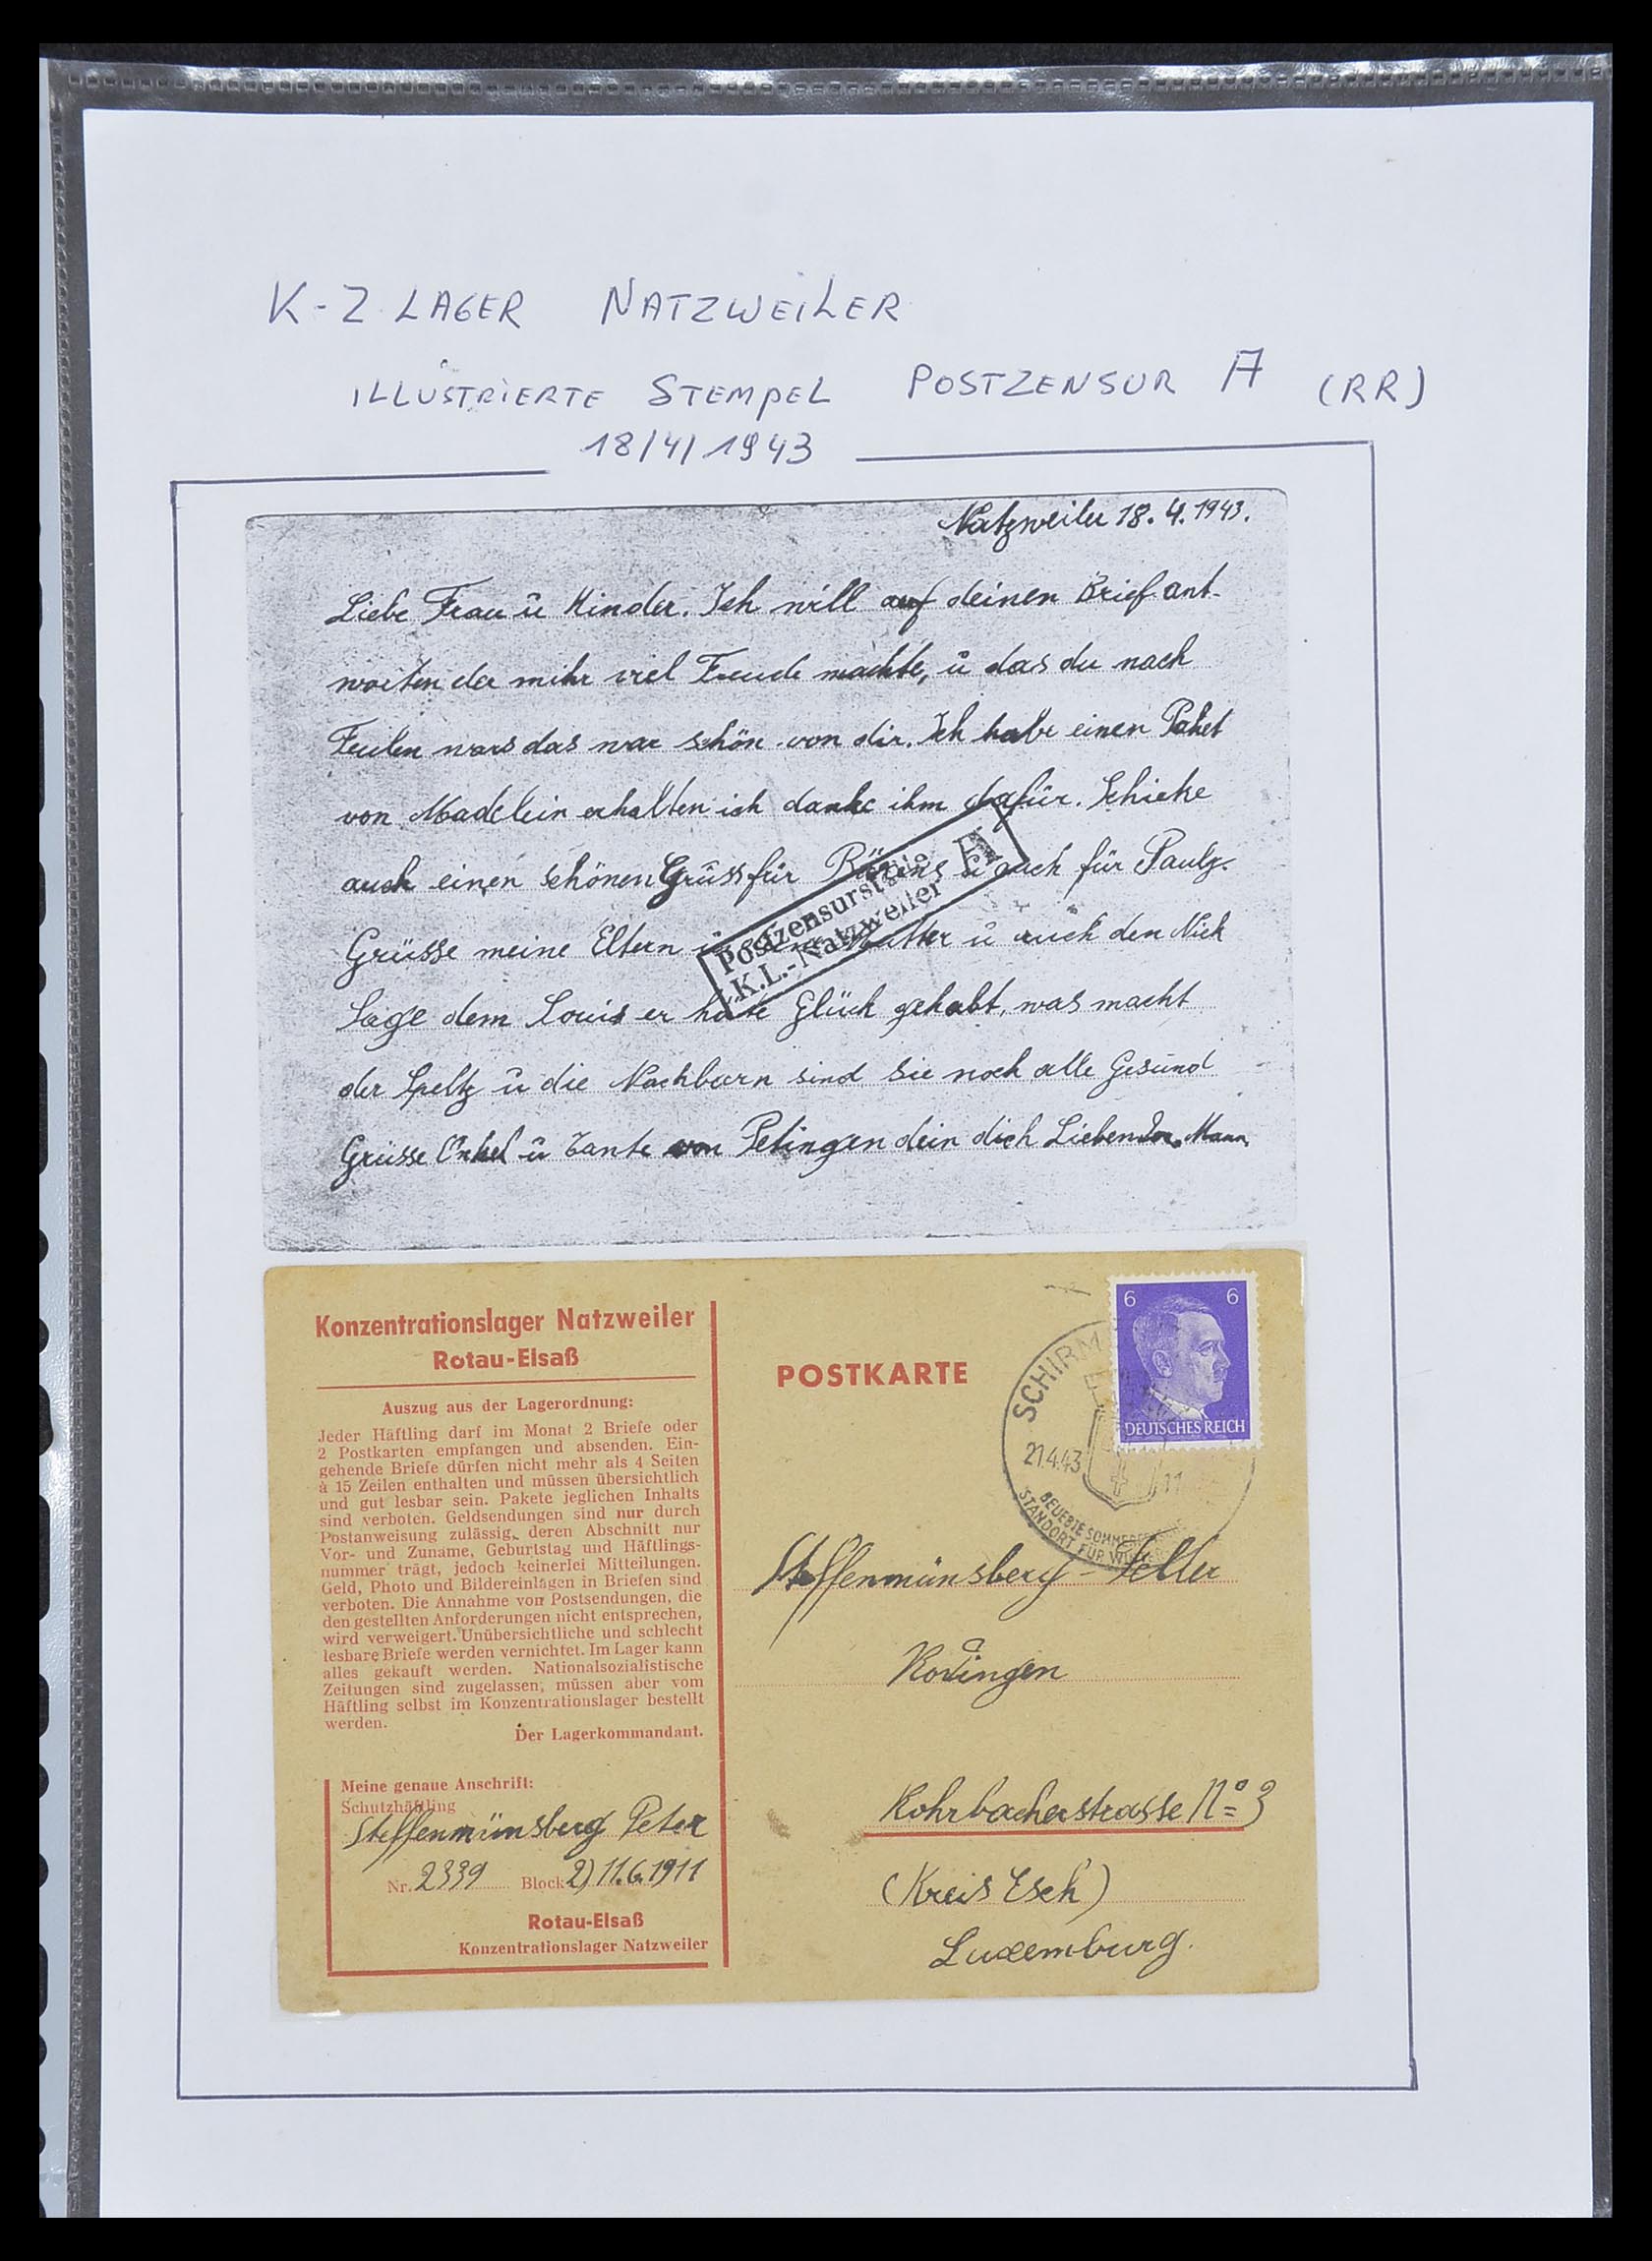 K-Z LAGER NATZWEILER
ILLUSTRIERTE STEMPEL POSTZENSUR A (RR)
18/4/1943
Natzweiler 18.4.1943.
Liebe Frau ü Kinder. Ich will auf deinen Brief ant-
worten der mihr viel Freude machte, ü das du nach
wars das war schön von dir. Ich habe einen Paket
von Madelein erhalten ich danke ihm dafür. Schicke
auch einen schönen Grüss für ü auch für Paulg.
Grüsse meine Eltern ü Mutter ü auch den Nick
Sage dem Louis er hate Glück gehabt, was macht
der Speltz ü die Nachbarn sind Sie noch alle Gesund
Grüsse Onkel ü Tante von Petingen dein dich Liebender Mann
Postzensurstelle A
K.L.-Natzweiler
Konzentrationslager Natzweiler
Rotau-Elsaß
Auszug aus der Lagerordnung:
Jeder Häftling darf im Monat 2 Briefe oder
2 Postkarten empfangen und absenden. Ein-
gehende Briefe dürfen nicht mehr als 4 Seiten
à 15 Zeilen enthalten und müssen übersichtlich
und gut lesbar sein. Pakete jeglichen Inhalts
sind verboten. Geldsendungen sind nur durch
Postanweisung zulässig, deren Abschnitt nur
Vor- und Zuname, Geburtstag und Häftlings-
nummer trägt, jedoch keinerlei Mitteilungen.
Geld, Photo und Bildereinlagen in Briefen sind
verboten. Die Annahme von Postsendungen, die
den gestellten Anforderungen nicht entsprechen,
wird verweigert. Unübersichtliche und schlecht
lesbare Briefe werden vernichtet. Im Lager kann
alles gekauft werden. Nationalsozialistische
Zeitungen sind zugelassen, müssen aber vom
Häftling selbst im Konzentrationslager bestellt
werden.
Der Lagerkommandant.
Meine genaue Anschrift:
Schutzhäftling
Steffenmünsberg Peter
Nr. 2339 Block 2) 11.6.1911
Rotau-Elsaß
Konzentrationslager Natzweiler
POSTKARTE
6 6
DEUTSCHES REICH
SCHIRM
21.4.43 11
BELIEBTE SOMMER
STANDORT FÜR
Steffenmünsberg - Feller
Rodingen
Rohrbacherstrasse N° 3
(Kreis Esch)
Luxemburg.